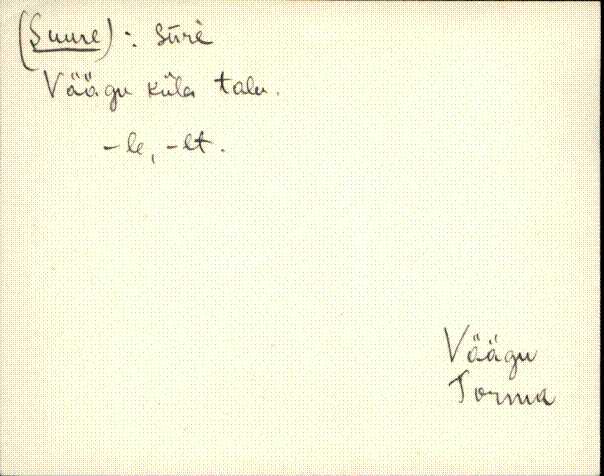 (Suure) : Sūrè
Väägu küla talu.
-le, -lt.
Väägu
Torma